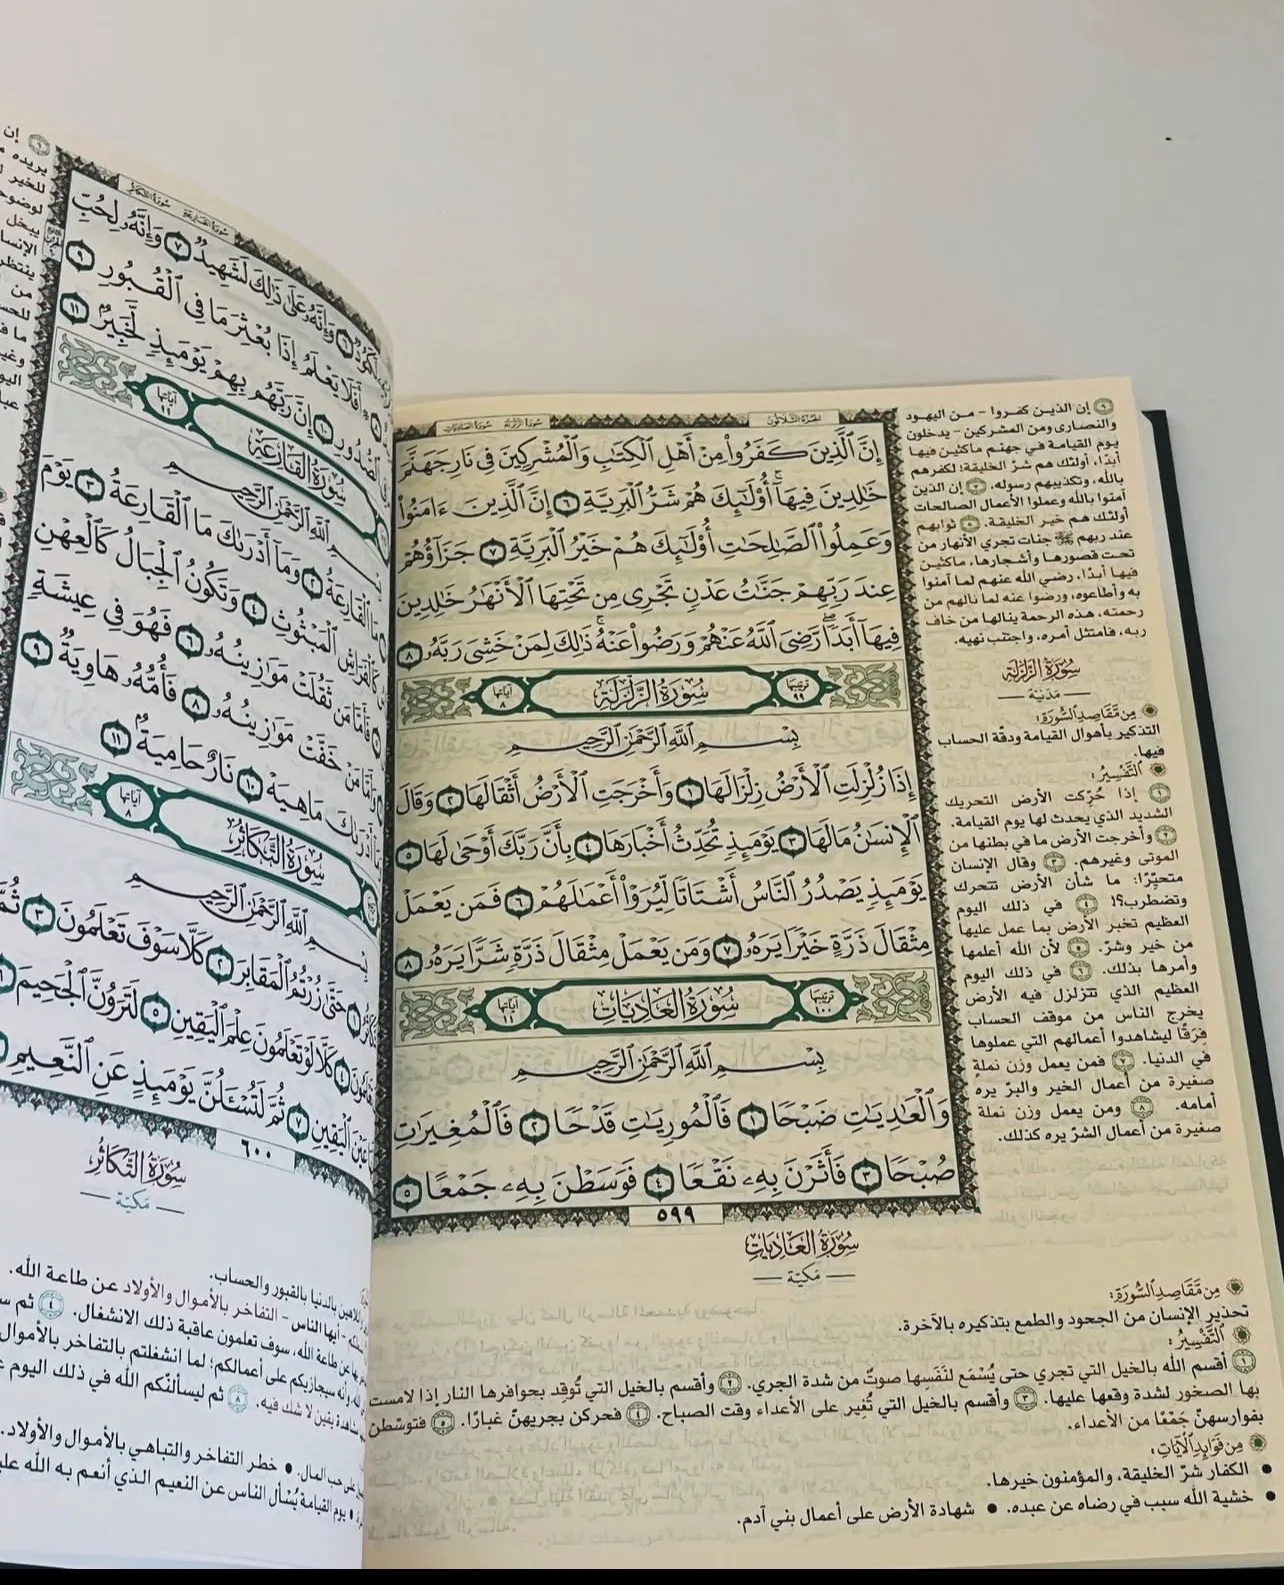 الجزء الثلاثون سورة الزلزلة سورة العاديات
إِنَّ ٱلَّذِينَ كَفَرُواْ مِنْ أَهْلِ ٱلْكِتَٰبِ وَٱلْمُشْرِكِينَ فِى نَارِ جَهَنَّمَ
خَٰلِدِينَ فِيهَآۚ أُوْلَٰٓئِكَ هُمْ شَرُّ ٱلْبَرِيَّةِ ٦ إِنَّ ٱلَّذِينَ ءَامَنُواْ
وَعَمِلُواْ ٱلصَّٰلِحَٰتِ أُوْلَٰٓئِكَ هُمْ خَيْرُ ٱلْبَرِيَّةِ ٧ جَزَآؤُهُمْ
عِندَ رَبِّهِمْ جَنَّٰتُ عَدْنٍ تَجْرِى مِن تَحْتِهَا ٱلْأَنْهَٰرُ خَٰلِدِينَ
فِيهَآ أَبَدًاۖ رَّضِىَ ٱللَّهُ عَنْهُمْ وَرَضُواْ عَنْهُۚ ذَٰلِكَ لِمَنْ خَشِىَ رَبَّهُۥ ٨
ترتيبها ٩٩ سُورَةُ الزَّلْزَلَةِ آياتها ٨
بِسْمِ ٱللَّهِ ٱلرَّحْمَٰنِ ٱلرَّحِيمِ
إِذَا زُلْزِلَتِ ٱلْأَرْضُ زِلْزَالَهَا ١ وَأَخْرَجَتِ ٱلْأَرْضُ أَثْقَالَهَا ٢ وَقَالَ
ٱلْإِنسَٰنُ مَا لَهَا ٣ يَوْمَئِذٍ تُحَدِّثُ أَخْبَارَهَا ٤ بِأَنَّ رَبَّكَ أَوْحَىٰ لَهَا ٥
يَوْمَئِذٍ يَصْدُرُ ٱلنَّاسُ أَشْتَاتًا لِّيُرَوْاْ أَعْمَٰلَهُمْ ٦ فَمَن يَعْمَلْ
مِثْقَالَ ذَرَّةٍ خَيْرًا يَرَهُۥ ٧ وَمَن يَعْمَلْ مِثْقَالَ ذَرَّةٍ شَرًّا يَرَهُۥ ٨
ترتيبها ١٠٠ سُورَةُ العَادِيَاتِ آياتها ١١
بِسْمِ ٱللَّهِ ٱلرَّحْمَٰنِ ٱلرَّحِيمِ
وَٱلْعَٰدِيَٰتِ ضَبْحًا ١ فَٱلْمُورِيَٰتِ قَدْحًا ٢ فَٱلْمُغِيرَٰتِ
صُبْحًا ٣ فَأَثَرْنَ بِهِۦ نَقْعًا ٤ فَوَسَطْنَ بِهِۦ جَمْعًا ٥
٥٩٩
٦ إن الذين كفروا - من اليهود
والنصارى ومن المشركين - يدخلون
يوم القيامة في جهنم ماكثين فيها
أبدًا، أولئك هم شرّ الخليقة؛ لكفرهم
بالله، وتكذيبهم رسوله. ٧ إن الذين
آمنوا بالله وعملوا الأعمال الصالحات
أولئك هم خير الخليقة. ٨ ثوابهم
عند ربهم ﷻ جنات تجري الأنهار من
تحت قصورها وأشجارها، ماكثين
فيها أبدًا، رضي الله عنهم لما آمنوا
به وأطاعوه، ورضوا عنه لما نالهم من
رحمته، هذه الرحمة ينالها من خاف
ربه، فامتثل أمره، واجتنب نهيه.
سُورَةُ الزَّلْزَلَةِ
— مَدَنِيّة —
مِن مَّقَاصِدِ السُّورَةِ:
التذكير بأهوال القيامة ودقة الحساب
فيها.
التَّفْسِيرُ:
١ إذا حُرِّكت الأرض التحريك
الشديد الذي يحدث لها يوم القيامة.
٢ وأخرجت الأرض ما في بطنها من
الموتى وغيرهم. ٣ وقال الإنسان
متحيّرًا: ما شأن الأرض تتحرك
وتضطرب؟! ٤ في ذلك اليوم
العظيم تخبر الأرض بما عمل عليها
من خير وشرّ. ٥ لأن الله أعلمها
وأمرها بذلك. ٦ في ذلك اليوم
العظيم الذي تتزلزل فيه الأرض
يخرج الناس من موقف الحساب
فِرَقًا ليشاهدوا أعمالهم التي عملوها
في الدنيا. ٧ فمن يعمل وزن نملة
صغيرة من أعمال الخير والبرّ يره
أمامه. ٨ ومن يعمل وزن نملة
صغيرة من أعمال الشرّ يره كذلك.
سُورَةُ العَادِيَاتِ
— مَكّيّة —
مِن مَّقَاصِدِ السُّورَةِ:
تحذير الإنسان من الجحود والطمع بتذكيره بالآخرة.
التَّفْسِيرُ:
١ أقسم الله بالخيل التي تجري حتى يُسْمَع لنَفَسِها صوتٌ من شدة الجري. ٢ وأقسم بالخيل التي تُوقِد بحوافرها النار إذا لامست
بها الصخور لشدة وقعها عليها. ٣ وأقسم بالخيل التي تُغِير على الأعداء وقت الصباح. ٤ فحركن بجريهنّ غبارًا. ٥ فتوسّطن
بفوارسهنّ جَمْعًا من الأعداء.
مِن فَوَائِدِ الآيَاتِ:
• الكفار شرّ الخليقة، والمؤمنون خيرها.
• خشية الله سبب في رضاه عن عبده. • شهادة الأرض على أعمال بني آدم.
لَكَنُودٌ ٦ وَإِنَّهُۥ عَلَىٰ ذَٰلِكَ لَشَهِيدٌ ٧ وَإِنَّهُۥ لِحُبِّ
أَفَلَا يَعْلَمُ إِذَا بُعْثِرَ مَا فِى ٱلْقُبُورِ ٩
ٱلصُّدُورِ ١٠ إِنَّ رَبَّهُم بِهِمْ يَوْمَئِذٍ لَّخَبِيرٌۢ ١١
سُورَةُ القَارِعَةِ آياتها ١١
بِسْمِ ٱللَّهِ ٱلرَّحْمَٰنِ ٱلرَّحِيمِ
مَا ٱلْقَارِعَةُ ٢ وَمَآ أَدْرَىٰكَ مَا ٱلْقَارِعَةُ ٣ يَوْمَ
كَٱلْفَرَاشِ ٱلْمَبْثُوثِ ٤ وَتَكُونُ ٱلْجِبَالُ كَٱلْعِهْنِ
فَأَمَّا مَن ثَقُلَتْ مَوَٰزِينُهُۥ ٦ فَهُوَ فِى عِيشَةٍ
وَأَمَّا مَنْ خَفَّتْ مَوَٰزِينُهُۥ ٨ فَأُمُّهُۥ هَاوِيَةٌ ٩
أَدْرَىٰكَ مَا هِيَهْ ١٠ نَارٌ حَامِيَةٌۢ ١١
سُورَةُ التَّكَاثُرِ آياتها ٨
بِسْمِ ٱللَّهِ ٱلرَّحْمَٰنِ ٱلرَّحِيمِ
١ حَتَّىٰ زُرْتُمُ ٱلْمَقَابِرَ ٢ كَلَّا سَوْفَ تَعْلَمُونَ ٣ ثُمَّ
٤ كَلَّا لَوْ تَعْلَمُونَ عِلْمَ ٱلْيَقِينِ ٥ لَتَرَوُنَّ ٱلْجَحِيمَ
عَيْنَ ٱلْيَقِينِ ٧ ثُمَّ لَتُسْـَٔلُنَّ يَوْمَئِذٍ عَنِ ٱلنَّعِيمِ
٦٠٠
سُورَةُ التَّكَاثُرِ
— مَكّيّة —
بالدنيا بالقبور والحساب.
- أيها الناس - التفاخر بالأموال والأولاد عن طاعة الله.
عن طاعة الله، سوف تعلمون عاقبة ذلك الانشغال. ٤ ثم
وأنه سيجازيكم على أعمالكم؛ لما انشغلتم بالتفاخر بالأموال
بيقين لا شك فيه. ٨ ثم ليسألنّكم الله في ذلك اليوم
حب المال. • خطر التفاخر والتباهي بالأموال والأولاد.
• يوم القيامة يُسْأل الناس عن النعيم الذي أنعم به الله